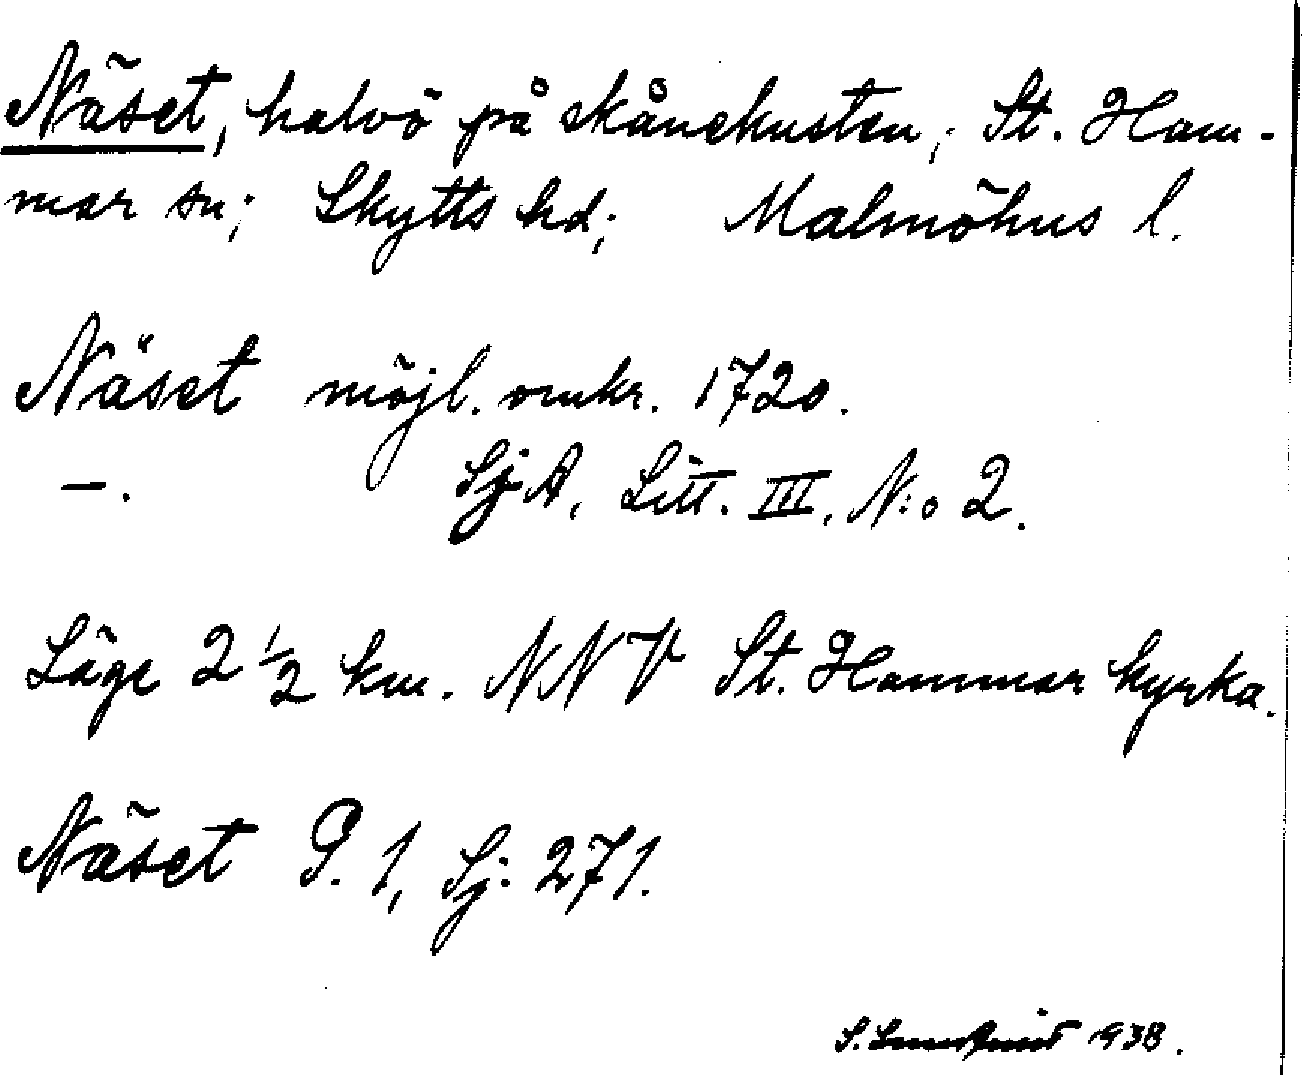 Näset, halvö på skånekusten; St. Ham-
mar sn; Skytts hd; Malmöhus l.
Näset möjl. omkr. 1720.
–. SjA, Litt. III, N:o 2.
Läge 2 1/2 km. NNV St. Hammar kyrka.
Näset P. 1, Sj. 271.
S. Lundkvist 1938.